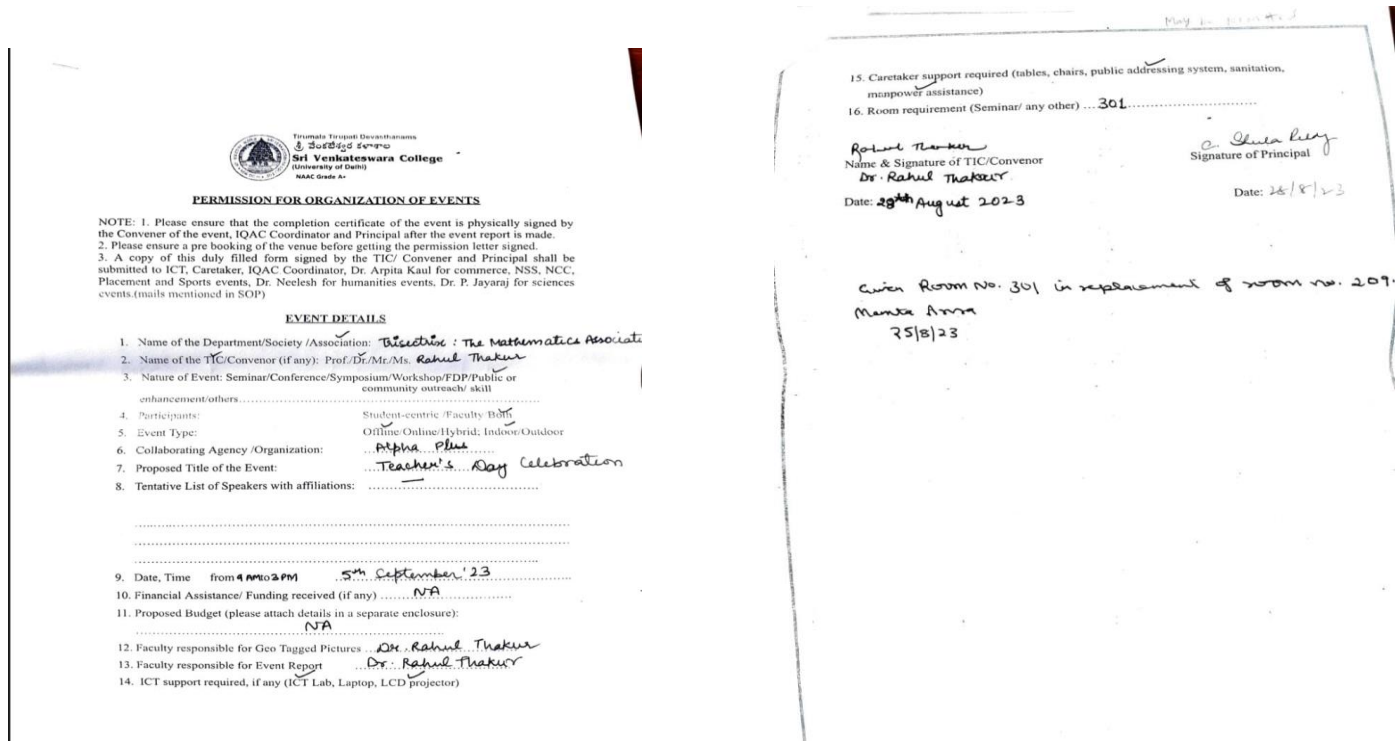 Tirumala Tirupati Devasthanams
శ్రీ వేంకటేశ్వర కళాశాల
Sri Venkateswara College
(University of Delhi)
NAAC Grade A+
PERMISSION FOR ORGANIZATION OF EVENTS
NOTE: 1. Please ensure that the completion certificate of the event is physically signed by
the Convener of the event, IQAC Coordinator and Principal after the event report is made.
2. Please ensure a pre booking of the venue before getting the permission letter signed.
3. A copy of this duly filled form signed by the TIC/ Convener and Principal shall be
submitted to ICT, Caretaker, IQAC Coordinator, Dr. Arpita Kaul for commerce, NSS, NCC,
Placement and Sports events, Dr. Neelesh for humanities events, Dr. P. Jayaraj for sciences
events.(mails mentioned in SOP)
EVENT DETAILS
1. Name of the Department/Society /Association: Trisectrix : The Mathematics Associati
2. Name of the TIC/Convenor (if any): Prof./Dr./Mr./Ms. Rahul Thakur
3. Nature of Event: Seminar/Conference/Symposium/Workshop/FDP/Public or
community outreach/ skill
enhancement/others
4. Participants: Student-centric /Faculty/Both
5. Event Type: Offline/Online/Hybrid; Indoor/Outdoor
6. Collaborating Agency /Organization: Alpha Plus
7. Proposed Title of the Event: Teacher's Day Celebration
8. Tentative List of Speakers with affiliations: —
9. Date, Time from 9 AM to 3 PM 5th September '23
10. Financial Assistance/ Funding received (if any) NA
11. Proposed Budget (please attach details in a separate enclosure):
NA
12. Faculty responsible for Geo Tagged Pictures Dr. Rahul Thakur
13. Faculty responsible for Event Report Dr. Rahul Thakur
14. ICT support required, if any (ICT Lab, Laptop, LCD projector)
May be permitted
15. Caretaker support required (tables, chairs, public addressing system, sanitation,
manpower assistance)
16. Room requirement (Seminar/ any other) 301
Rahul Thakur
Name & Signature of TIC/Convenor
Dr. Rahul Thakur
Date: 28th August 2023
Signature of Principal
Date: 28/8/23
Given Room No. 301 in replacement of room no. 209.
25/8/23